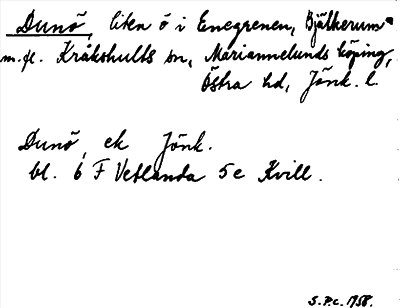 Dunö, liten ö i Enegrenen, Bjälkerum
m.fl. Kråkshults sn, Mariannelunds köping,
Östra hd, Jönk. l.
Dunö, ek Jönk.
bl. 6 F Vetlanda 5e Kvill.
S.P.c. 1958.